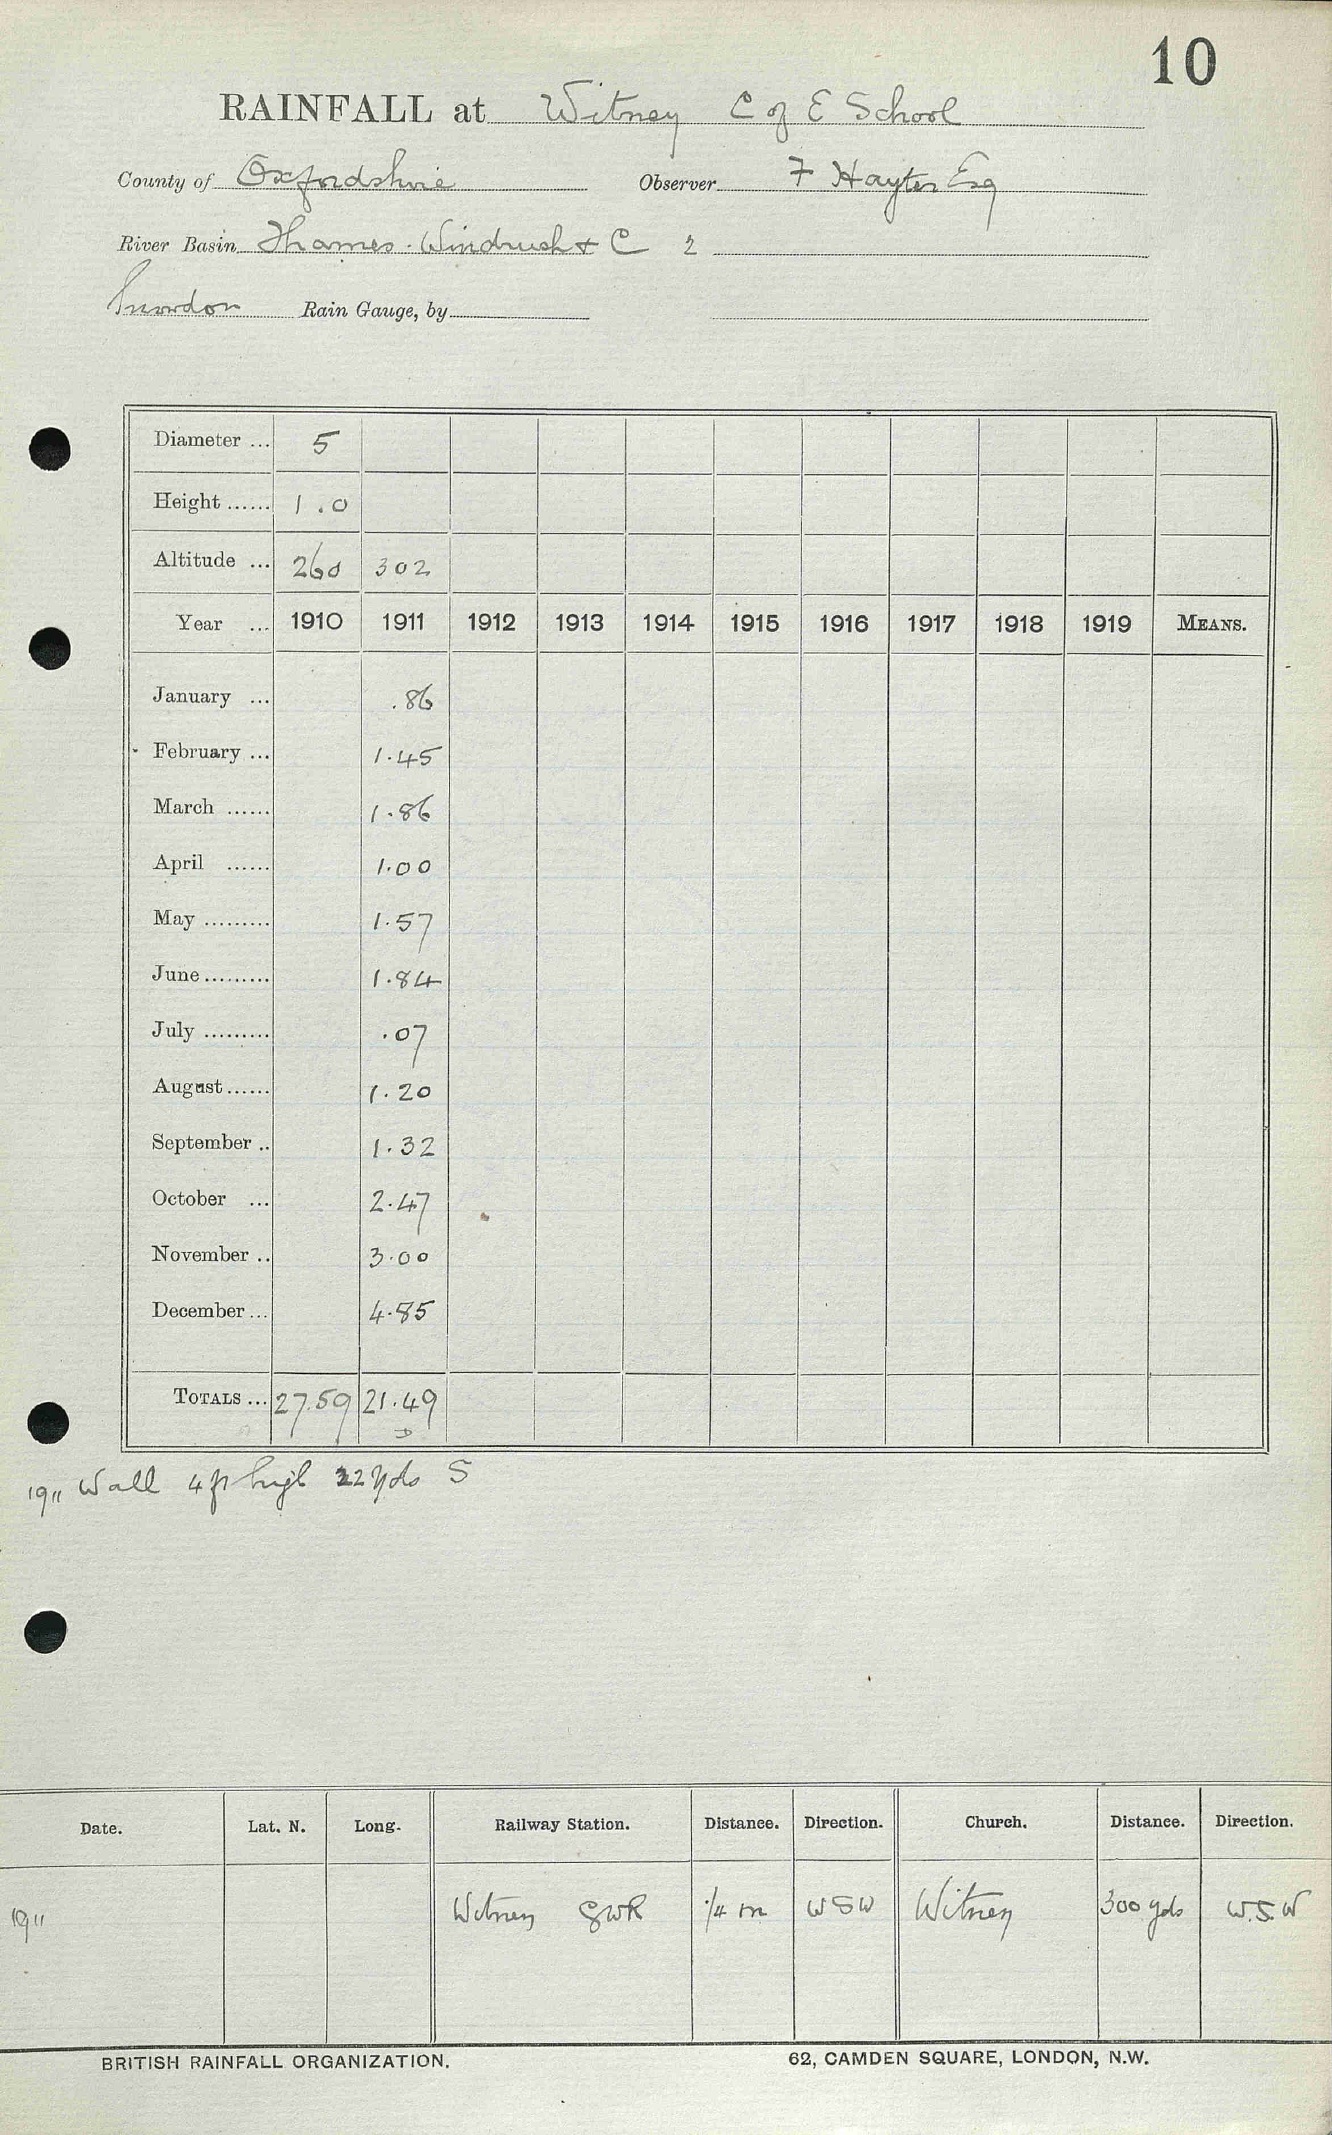 10
RAINFALL at Witney C of E School
County of Oxfordshire Observer F Hayter Esq
River Basin Thames - Windrush & C 2
Snowdon Rain Gauge, by
Diameter ... 5
Height ...... 1.0
Altitude ... 260 302
Year ... 1910 1911 1912 1913 1914 1915 1916 1917 1918 1919 MEANS.
January ... .86
February ... 1.45
March ...... 1.86
April ...... 1.00
May ......... 1.57
June ......... 1.84
July ......... .07
August ...... 1.20
September .. 1.32
October ... 2.47
November .. 3.00
December ... 4.85
TOTALS ... 27.59 21.49
D
1911 Wall 4 ft high 22 yds S
Date. Lat. N. Long. Railway Station. Distance. Direction. Church. Distance. Direction.
1911 Witney GWR 1/4 m WSW Witney 300 yds W.S.W
BRITISH RAINFALL ORGANIZATION. 62, CAMDEN SQUARE, LONDON, N.W.